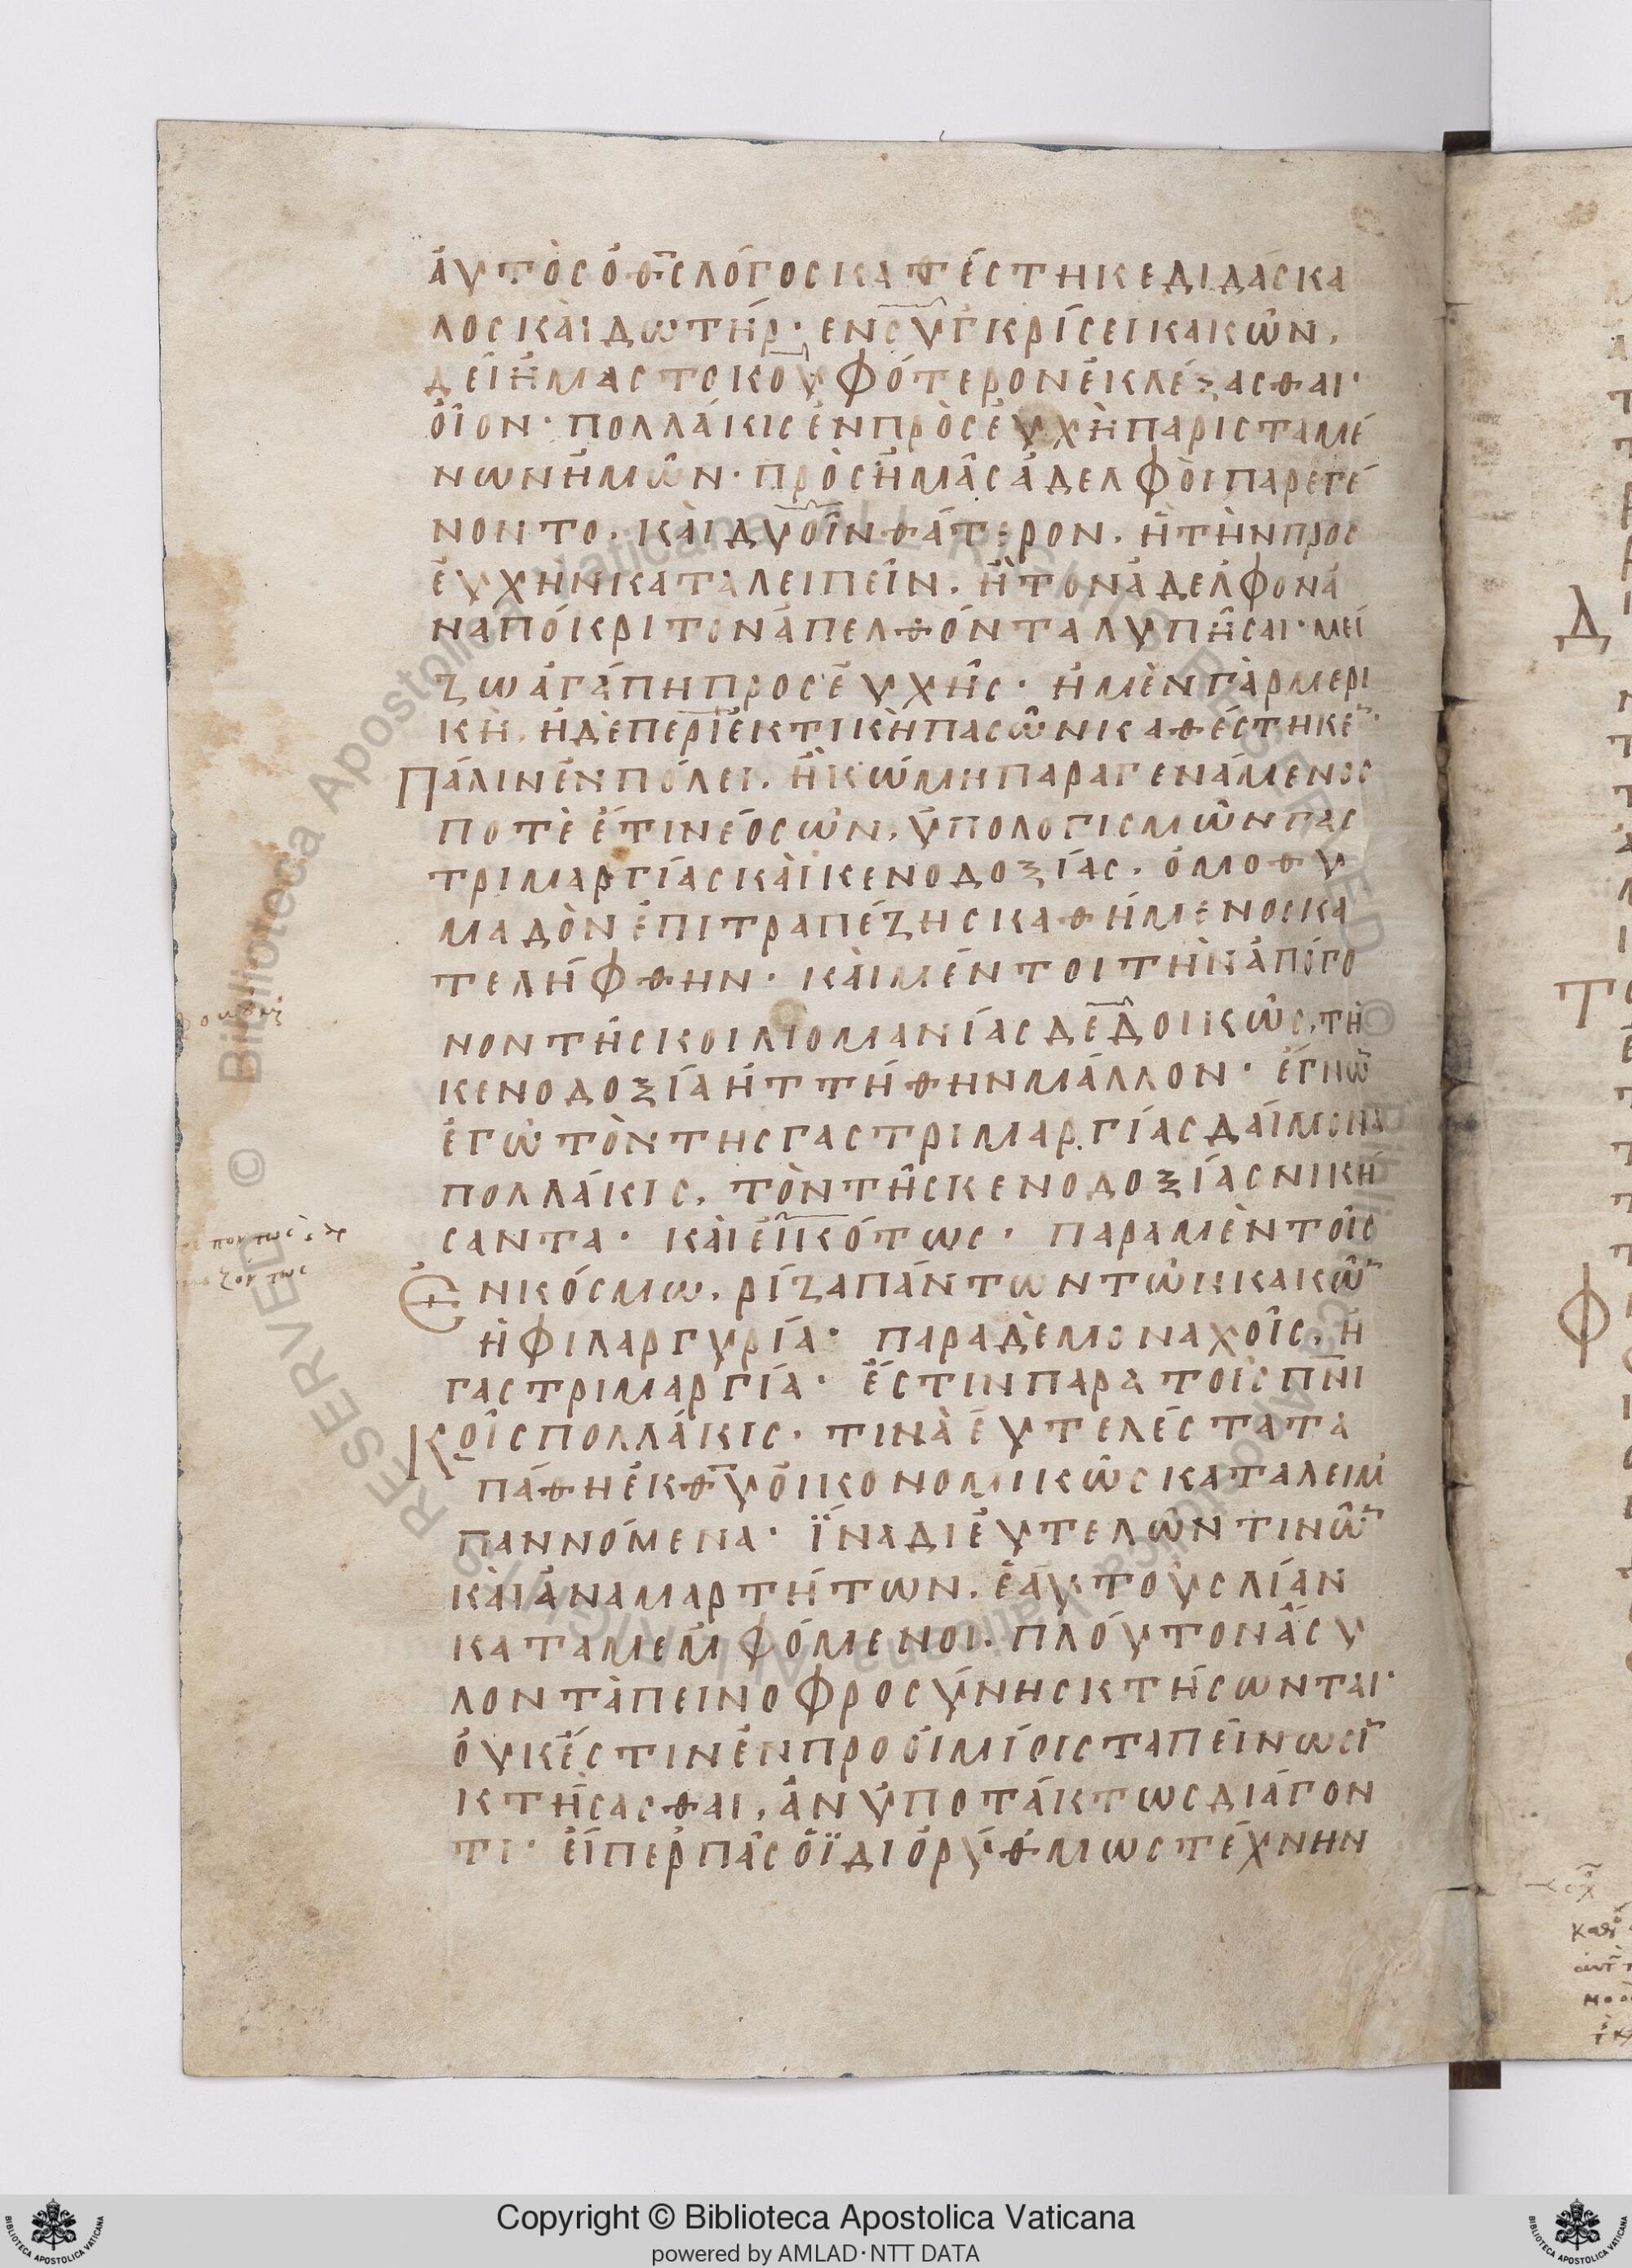 ἀυτὸσ ὁ θ̅σ λόγοσ καθέστηκε διδάσκα
λοσ κὰι δωτήρ· εν συγκρίσει κακῶν,
δεῖ ἡμασ το κουφότερον ἐκλέξασθαι·
οἷον· πολλάκισ ἐν πρὸσευχῆ παρισταμέ
νων ἡμῶν· πρὸσ ἡμᾶσ ἀδελφὸι παρεγέ
νοντο, κὰι δυοῖν θάτερον, ἢ τὴν προσ
ευχὴν καταλειπεῖν, ἢ τον ἀδελφον ἀ
ναπόκριτον ἀπελθόντα λυπῆσαι· μεί
ζω ἀγάπη προσευχῆσ· ἡ μὲν γὰρ μερι
κὴ, ἡ δὲ περιεκτικὴ πασῶν καθέστηκε̅·
Πάλιν ἐν πόλει, ἢ κώμη παραγενάμενοσ
ποτὲ ἔτι νέοσ ὢν, ὑπο λογισμῶν γασ
τριμαργίασ κὰι κενοδοξίασ, ὁμοθυ
μαδὸν ἐπι τραπέζησ καθήμενοσ κα
τελήφθην· κὰι μέντοι τὴν ἀπόγο
νον τήσ κοιλιομανίασ δεδοικὼσ, τῆ
κενοδοξία ἡττήθην μάλλον· ἔγνω̅
ἐγὼ τὸν τησ γαστριμαργίασ δάιμονα
πολλάκισ, τὸν τῆσ κενοδοξίασ νικὴ
σαντα· κὰι εἰκότωσ· παρα μὲν τοῖσ
Ἐν κόσμω, ρίζα πάντων τῶν κακω̅
ἡ φιλαργυρία· παρα δὲ μοναχοῖσ, ἡ
γαστριμαργία· ἔστιν παρα τοῖσ πν̅ι
Κοῖσ πολλάκισ· τινὰ ἐυτελέστατα
πάθη ἐκ θ̅υ ὀικονομικῶσ καταλειμ
παννόμενα· ἵνα δι ἐυτελῶν τινω̅
κὰι ἀναμαρτήτων, ἑαυτουσ λίαν
καταμεμφόμενοι. πλόυτον ἄσυ
λον τὰπεινοφροσύνησ κτήσωνται·
ὀυκ ἔστιν ἐν προοιμίοισ ταπείνωσι̅
κτήσασθαι, ἀνυποτάκτωσ διάγον
τι· ἔιπερ πᾶσ ὁ ϊδιορύθμωσ τέχνην
Copyright © Biblioteca Apostolica Vaticana
powered by AMLAD·NTT DATA